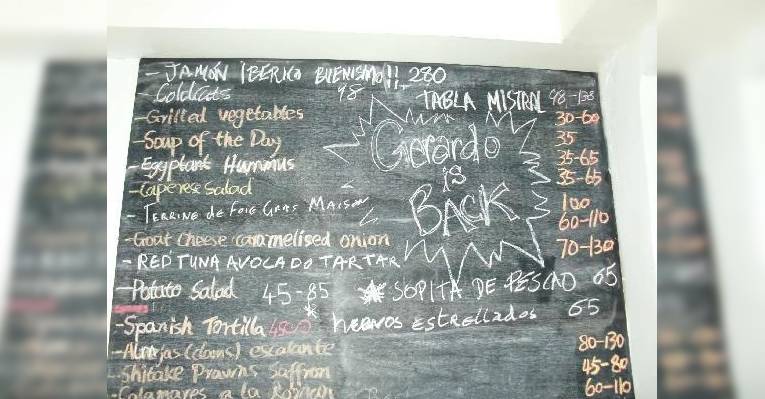 - JAMÓN IBERICO BUENISMO!! 280
- Coldcuts 98 TABLA MISTRAL 98-138
- Grilled vegetables 30-60
- Soup of the Day 35
- Eggplant Hummus 35-65
- Caperese Salad 35-65
- TERRINE de FOIE GRAS MAISON 100
Gerardo
is
BACK
60-110
- Goat cheese caramelised onion 70-130
- RED TUNA AVOCADO TARTAR
- Potato Salad 45-85 SOPITA DE PESCAO 65
- Spanish Tortilla huevos estrellados 65
- Almejas (clams) escalante 80-130
- Shitake Prawns Saffron 45-80
- Calamares a la Roman 60-110